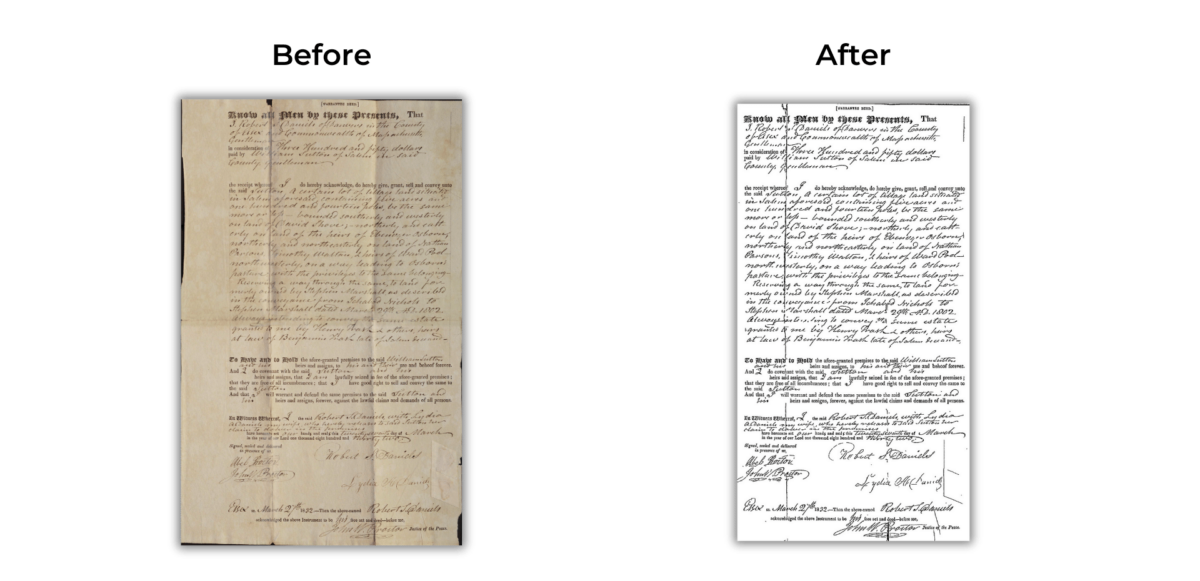 Before
After
[WARRANTEE DEED.]
Know all Men by these Presents, That
I, Robert S. Daniels of Danvers in the County
of Essex and Commonwealth of Massachusetts
Gentleman
in consideration of Three Hundred and fifty dollars
paid by William Sutton of Salem in said
County, gentleman
the receipt whereof I do hereby acknowledge, do hereby give, grant, sell and convey unto
the said Sutton, A certain lot of tillage land situate
in Salem aforesaid, containing five acres and
one hundred and fourteen poles, be the same
more or less — bounded southerly and westerly
on land of David Shove; northerly and east-
erly on land of the heirs of Ebenezer Osborne;
northerly and northeasterly, on land of Nathan
Parsons, Timothy Walton, & heirs of Ward Pool
northwesterly, on a way leading to Osborns
pasture, with the privileges to the same belonging
Reserving a way through the same, to land for-
merly owned by Stephen Marshall, as described
in the conveyance from Ichabod Nichols to
Stephen Marshall dated March 29th AD. 1802.
Always intending to convey the same estate
granted to me by Henry & others, heirs
at law of Benjamin late of Salem
To Have and to Hold the afore-granted premises to the said William Sutton
and his heirs and assigns, to his and their use and behoof forever.
And I do covenant with the said Sutton and his
heirs and assigns, that I am lawfully seized in fee of the afore-granted premises;
that they are free of all incumbrances; that I have good right to sell and convey the same to
the said Sutton
And that I will warrant and defend the same premises to the said Sutton and
his heirs and assigns, forever, against the lawful claims and demands of all persons.
In Witness Whereof, I the said Robert S. Daniels with Lydia
my wife, who hereby releases to said Sutton her
claim to dower in the premises
have hereunto set our hands and seals this twenty seventh day of March
in the year of our Lord one thousand eight hundred and thirty two
Signed, sealed and delivered
in presence of us,
Robert S. Daniels
John W. Proctor
Lydia Daniels
Essex ss. March 27th 1832.—Then the above-named Robert S. Daniels
acknowledged the above Instrument to be his free act and deed—before me,
John W. Proctor Justice of the Peace.